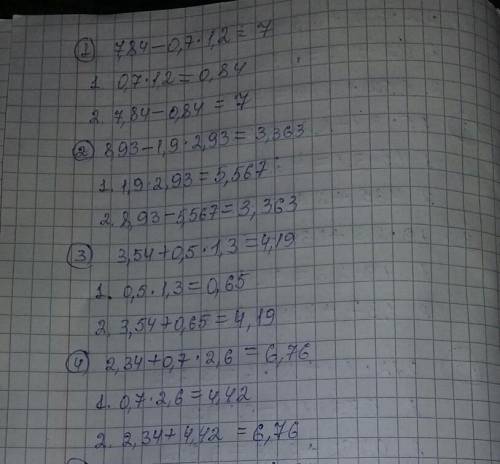 ① 7,84-0,7·1,2=7
1. 0,7·1,2=0,84
2. 7,84-0,84=7
② 8,93-1,9·2,93=3,363
1. 1,9·2,93=5,567
2. 8,93-5,567=3,363
③ 3,54+0,5·1,3=4,19
1. 0,5·1,3=0,65
2. 3,54+0,65=4,19
④ 2,34+0,7·2,6=6,76
1. 0,7·2,6=4,42
2. 2,34+4,42=6,76